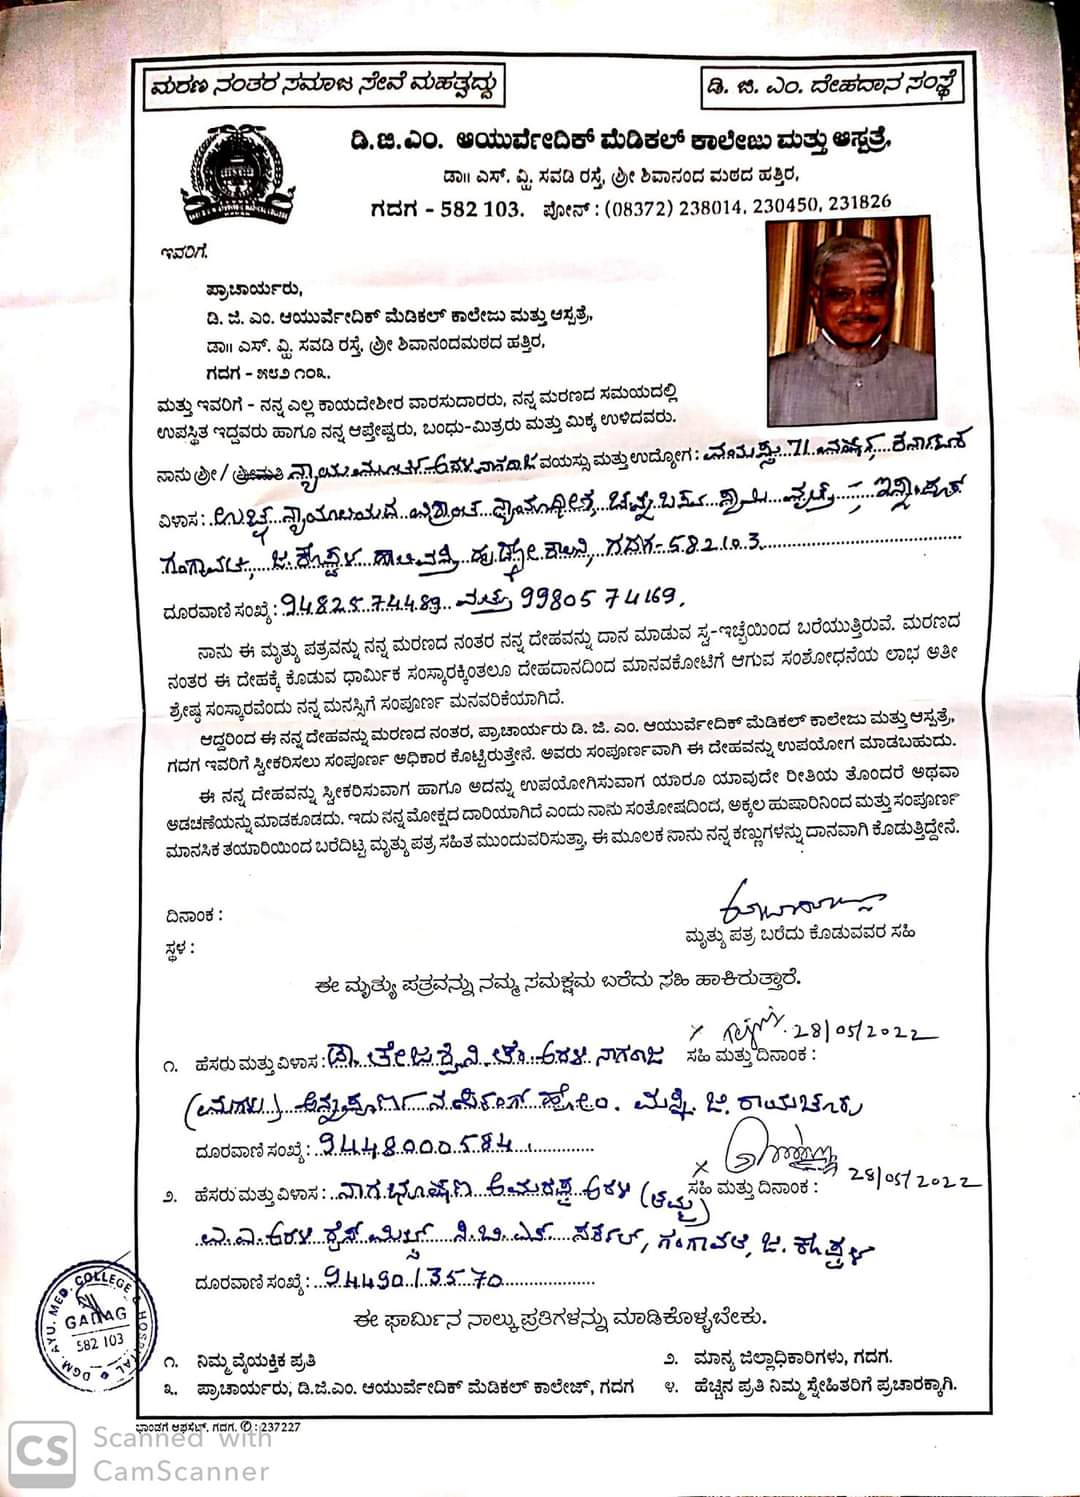 ಮರಣ ನಂತರ ಸಮಾಜ ಸೇವೆ ಮಹತ್ವದ್ದು
ಡಿ. ಜಿ. ಎಂ. ದೇಹದಾನ ಸಂಸ್ಥೆ
ಡಿ.ಜಿ.ಎಂ. ಆಯುರ್ವೇದಿಕ್ ಮೆಡಿಕಲ್ ಕಾಲೇಜು ಮತ್ತು ಆಸ್ಪತ್ರೆ,
ಡಾ॥ ಎಸ್. ವ್ಹಿ. ಸವಡಿ ರಸ್ತೆ, ಶ್ರೀ ಶಿವಾನಂದ ಮಠದ ಹತ್ತಿರ,
ಗದಗ - 582 103. ಫೋನ್ : (08372) 238014, 230450, 231826
ಇವರಿಗೆ.
ಪ್ರಾಚಾರ್ಯರು,
ಡಿ. ಜಿ. ಎಂ. ಆಯುರ್ವೇದಿಕ್ ಮೆಡಿಕಲ್ ಕಾಲೇಜು ಮತ್ತು ಆಸ್ಪತ್ರೆ,
ಡಾ॥ ಎಸ್. ವ್ಹಿ. ಸವಡಿ ರಸ್ತೆ, ಶ್ರೀ ಶಿವಾನಂದಮಠದ ಹತ್ತಿರ,
ಗದಗ - ೫೮೨ ೧೦೩.
ಮತ್ತು ಇವರಿಗೆ - ನನ್ನ ಎಲ್ಲ ಕಾಯದೇಶೀರ ವಾರಸುದಾರರು, ನನ್ನ ಮರಣದ ಸಮಯದಲ್ಲಿ
ಉಪಸ್ಥಿತ ಇದ್ದವರು ಹಾಗೂ ನನ್ನ ಆಪ್ತೇಷ್ಟರು, ಬಂಧು-ಮಿತ್ರರು ಮತ್ತು ಮಿಕ್ಕ ಉಳಿದವರು.
ನಾನು ಶ್ರೀ / ಶ್ರೀಮತಿ ನ್ಯಾಯಮೂರ್ತಿ ಅರಳಿ ನಾಗರಾಜ ವಯಸ್ಸು ಮತ್ತು ಉದ್ಯೋಗ : ವಯಸ್ಸು 71 ವರ್ಷ, ಕರ್ನಾಟಕ
ವಿಳಾಸ : ಉಚ್ಚ ನ್ಯಾಯಾಲಯದ ವಿಶ್ರಾಂತ ನ್ಯಾಯಾಧೀಶ,
ಗಂಗಾವತಿ, ಜಿ. ಕೊಪ್ಪಳ ಹಾಲಿವಸ್ತಿ ಹುಡ್ಕೋ ಕಾಲನಿ, ಗದಗ-582103.
ದೂರವಾಣಿ ಸಂಖ್ಯೆ : 9482574489 ಮತ್ತು 9980574169.
ನಾನು ಈ ಮೃತ್ಯು ಪತ್ರವನ್ನು ನನ್ನ ಮರಣದ ನಂತರ ನನ್ನ ದೇಹವನ್ನು ದಾನ ಮಾಡುವ ಸ್ವ-ಇಚ್ಛೆಯಿಂದ ಬರೆಯುತ್ತಿರುವೆ. ಮರಣದ
ನಂತರ ಈ ದೇಹಕ್ಕೆ ಕೊಡುವ ಧಾರ್ಮಿಕ ಸಂಸ್ಕಾರಕ್ಕಿಂತಲೂ ದೇಹದಾನದಿಂದ ಮಾನವಕೋಟಿಗೆ ಆಗುವ ಸಂಶೋಧನೆಯ ಲಾಭ ಅತೀ
ಶ್ರೇಷ್ಠ ಸಂಸ್ಕಾರವೆಂದು ನನ್ನ ಮನಸ್ಸಿಗೆ ಸಂಪೂರ್ಣ ಮನವರಿಕೆಯಾಗಿದೆ.
ಆದ್ದರಿಂದ ಈ ನನ್ನ ದೇಹವನ್ನು ಮರಣದ ನಂತರ, ಪ್ರಾಚಾರ್ಯರು ಡಿ. ಜಿ. ಎಂ. ಆಯುರ್ವೇದಿಕ್ ಮೆಡಿಕಲ್ ಕಾಲೇಜು ಮತ್ತು ಆಸ್ಪತ್ರೆ,
ಗದಗ ಇವರಿಗೆ ಸ್ವೀಕರಿಸಲು ಸಂಪೂರ್ಣ ಅಧಿಕಾರ ಕೊಟ್ಟಿರುತ್ತೇನೆ. ಅವರು ಸಂಪೂರ್ಣವಾಗಿ ಈ ದೇಹವನ್ನು ಉಪಯೋಗ ಮಾಡಬಹುದು.
ಈ ನನ್ನ ದೇಹವನ್ನು ಸ್ವೀಕರಿಸುವಾಗ ಹಾಗೂ ಅದನ್ನು ಉಪಯೋಗಿಸುವಾಗ ಯಾರೂ ಯಾವುದೇ ರೀತಿಯ ತೊಂದರೆ ಅಥವಾ
ಅಡಚಣೆಯನ್ನು ಮಾಡಕೂಡದು. ಇದು ನನ್ನ ಮೋಕ್ಷದ ದಾರಿಯಾಗಿದೆ ಎಂದು ನಾನು ಸಂತೋಷದಿಂದ, ಅಕ್ಕಲ ಹುಷಾರಿನಿಂದ ಮತ್ತು ಸಂಪೂರ್ಣ
ಮಾನಸಿಕ ತಯಾರಿಯಿಂದ ಬರೆದಿಟ್ಟ ಮೃತ್ಯು ಪತ್ರ ಸಹಿತ ಮುಂದುವರಿಸುತ್ತಾ, ಈ ಮೂಲಕ ನಾನು ನನ್ನ ಕಣ್ಣುಗಳನ್ನು ದಾನವಾಗಿ ಕೊಡುತ್ತಿದ್ದೇನೆ.
ದಿನಾಂಕ :
ಸ್ಥಳ :
ಮೃತ್ಯು ಪತ್ರ ಬರೆದು ಕೊಡುವವರ ಸಹಿ
ಈ ಮೃತ್ಯು ಪತ್ರವನ್ನು ನಮ್ಮ ಸಮಕ್ಷಮ ಬರೆದು ಸಹಿ ಹಾಕಿರುತ್ತಾರೆ.
28/05/2022
೧. ಹೆಸರು ಮತ್ತು ವಿಳಾಸ : ಡಾ. ತೇಜಸ್ವಿನಿ ಅರಳಿ ನಾಗರಾಜ ಸಹಿ ಮತ್ತು ದಿನಾಂಕ :
(ಮಗಳು) ಅನ್ನಪೂರ್ಣ ನರ್ಸಿಂಗ್ ಹೋಂ. ಮಸ್ಕಿ ಜಿ. ರಾಯಚೂರು
ದೂರವಾಣಿ ಸಂಖ್ಯೆ : 9448000584
೨. ಹೆಸರು ಮತ್ತು ವಿಳಾಸ : ನಾಗಭೂಷಣ ಅಮರಪ್ಪ ಅರಳಿ (ತಮ್ಮ) ಸಹಿ ಮತ್ತು ದಿನಾಂಕ : 28/05/2022
ಎ.ಎ. ಅರಳಿ ರೈಸ್ ಮಿಲ್ಸ್ ಸಿ.ಬಿ.ಎಸ್. ಸರ್ಕಲ್, ಗಂಗಾವತಿ, ಜಿ. ಕೊಪ್ಪಳ
ದೂರವಾಣಿ ಸಂಖ್ಯೆ : 9449013570
ಈ ಫಾರ್ಮಿನ ನಾಲ್ಕು ಪ್ರತಿಗಳನ್ನು ಮಾಡಿಕೊಳ್ಳಬೇಕು.
೧. ನಿಮ್ಮ ವೈಯಕ್ತಿಕ ಪ್ರತಿ
೨. ಮಾನ್ಯ ಜಿಲ್ಲಾಧಿಕಾರಿಗಳು, ಗದಗ.
೩. ಪ್ರಾಚಾರ್ಯರು, ಡಿ.ಜಿ.ಎಂ. ಆಯುರ್ವೇದಿಕ್ ಮೆಡಿಕಲ್ ಕಾಲೇಜ್, ಗದಗ
೪. ಹೆಚ್ಚಿನ ಪ್ರತಿ ನಿಮ್ಮ ಸ್ನೇಹಿತರಿಗೆ ಪ್ರಚಾರಕ್ಕಾಗಿ.
DGM. AYU. MED. COLLEGE & HOSPITAL
GADAG
582 103
ಭಾಂಡಗೆ ಆಫಸೆಟ್, ಗದಗ. ✆ : 237227
CS
Scanned with
CamScanner